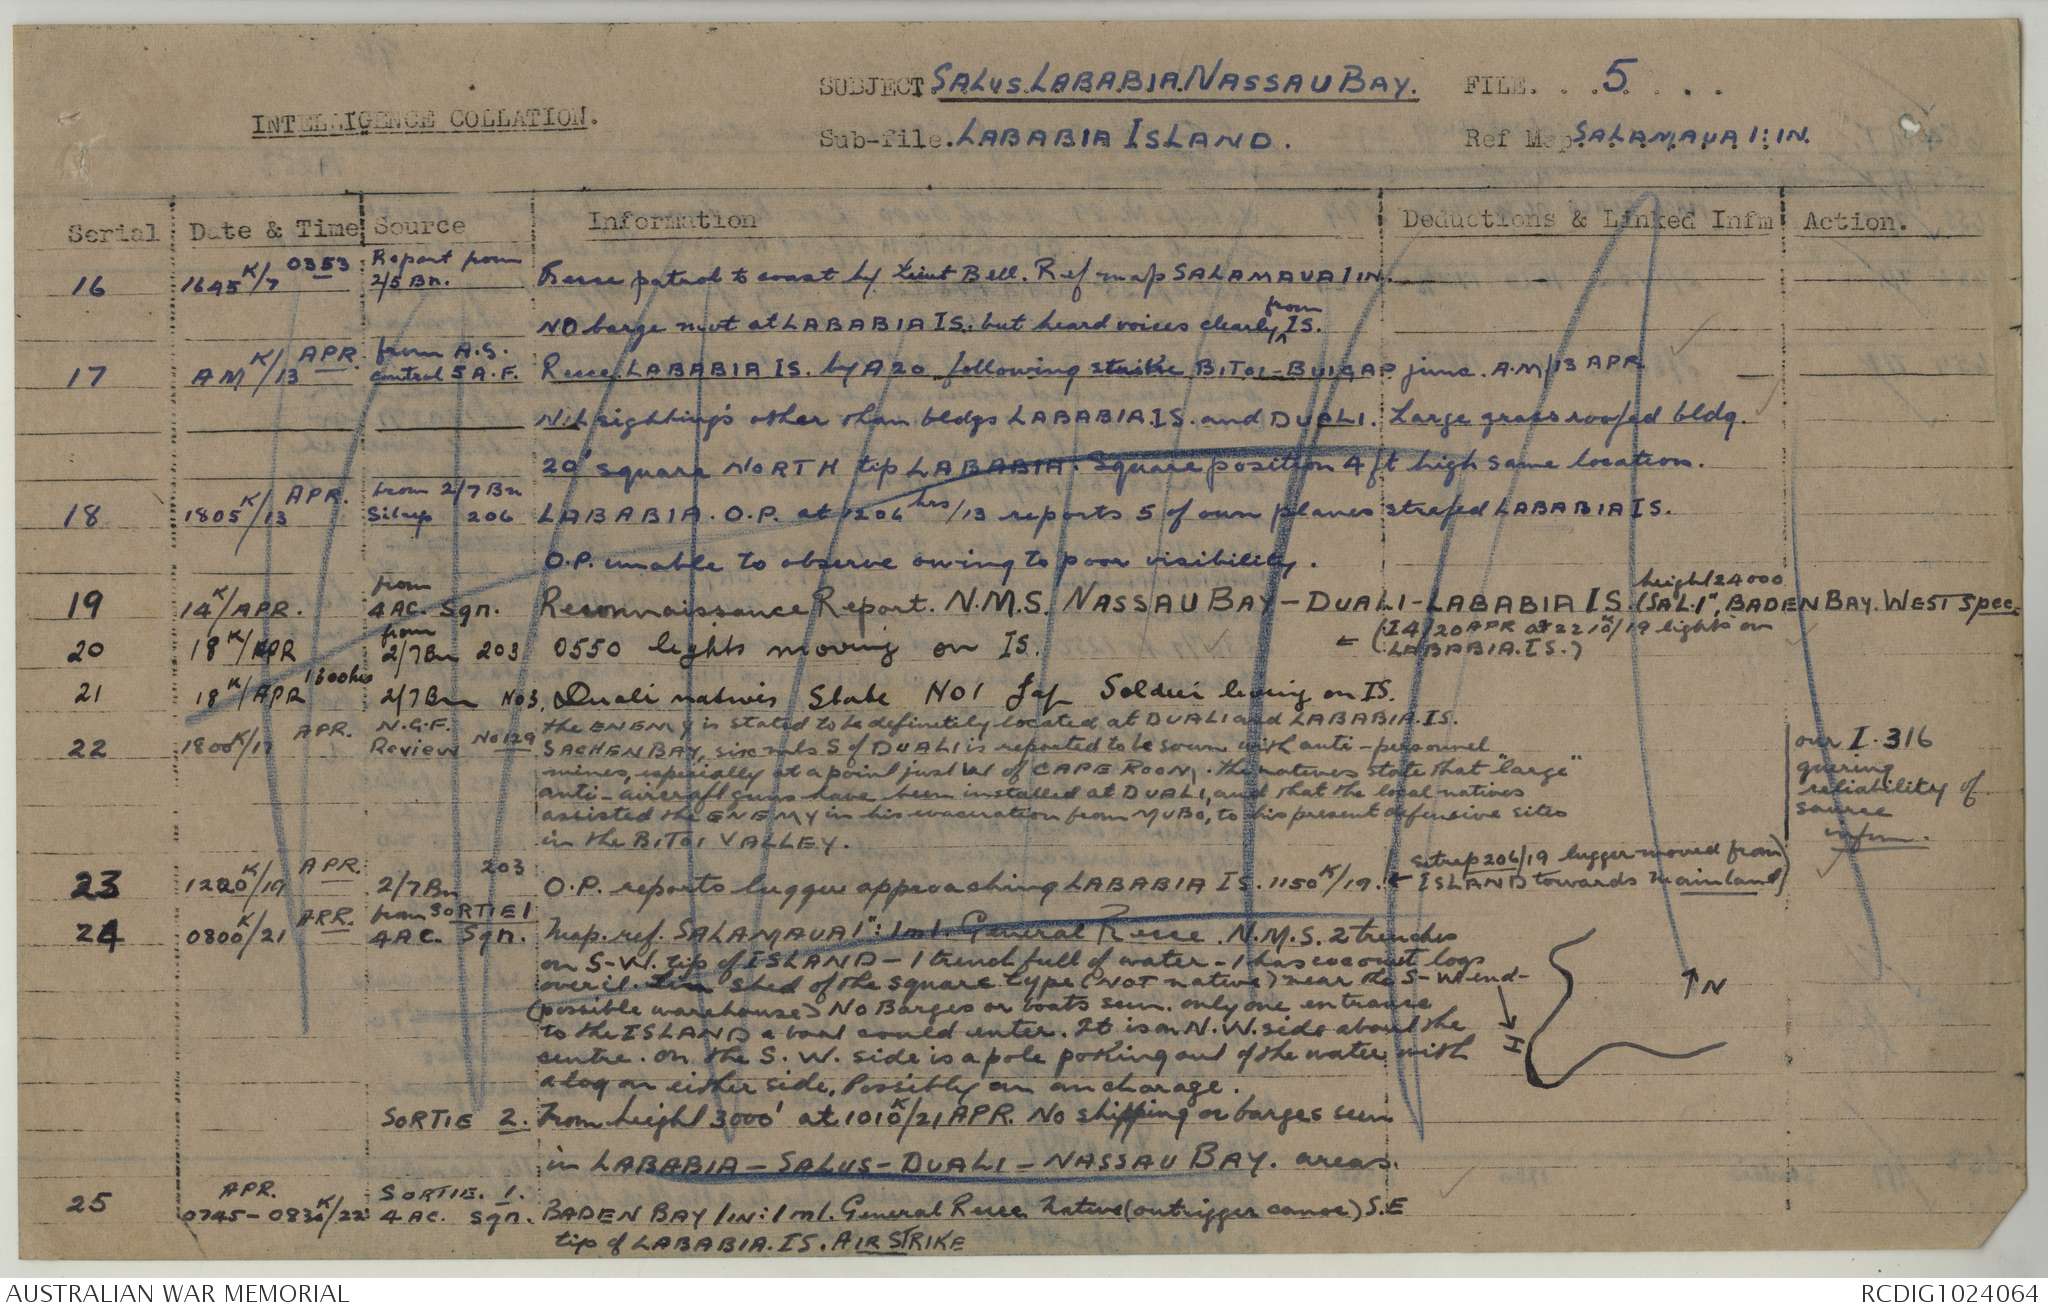 SUBJECT. SALUS. LABABIA. NASSAU BAY. FILE. . . 5. . . .
INTELLIGENCE COLLATION.
Sub-file. LABABIA ISLAND. Ref Map SALAMAUA 1:IN.
Serial Date & Time Source Information Deductions & Linked Infm Action.
16 1645K/7 0353 Report from 2/5 Bn. Recce patrol to coast by Lieut Bell. Ref map SALAMAUA 1 IN.
NO barge met at LABABIA IS. but heard voices clearly from IS.
17 AMK/13 APR. from A.S. control 5 A.F. Recce. LABABIA IS. by A20 following strike BITOI-BUIGAP junc. A.M/13 APR
NIL sighting's other than bldgs LABABIA IS. and DUALI. Large grass roofed bldg.
20' square NORTH tip LABABIA. Square position 4 ft high same location.
18 1805K/13 APR. from 2/7 Bn Sitrep 206 LABABIA. O.P. at 1206 hrs/13 reports 5 of own planes strafed LABABIA IS.
O.P. unable to observe owing to poor visibility.
19 14K/APR. from 4 AC. Sqn. Reconnaissance Report. N.M.S. NASSAU BAY - DUALI - LABABIA IS. height 24000 (SAL.1", BADEN BAY. WEST Spec.
20 18K/APR from 2/7 Bn 203 0550 lights moving on IS. ← (I4/20 APR at 2210K/19 lights on LABABIA. IS.)
21 18K/APR 1800hrs 2/7 Bn No3, Duali natives State NO 1 Jap Soldier living on IS.
22 1800K/17 APR. N.G.F. Review No 129 the ENEMY is stated to be definitely located at DUALI and LABABIA. IS.
SACHEN BAY, six mls S of DUALI is reported to be sown with anti-personnel
mines, especially at a point just W of CAPE ROON. the natives state that "large"
anti-aircraft guns have been installed at DUALI, and that the local natives
assisted the ENEMY in his evacuation from MUBO, to his present defensive sites
in the BITOI VALLEY.
our I.316
quering
reliability of
source
infm.
23 1220K/19 APR. 2/7 Bn 203 O.P. reports lugger approaching LABABIA IS. 1150K/19. ← (sitrep 206/19 lugger moved from ISLAND towards mainland)
24 0800K/21 APR. from SORTIE 1 4 AC. Sqn. Map. ref. SALAMAUA 1": 1 ml. General Recce. N.M.S. 2 trenches
on S-W. tip of ISLAND - 1 trench full of water - 1 has coconut logs
over it. Iron shed of the square type (NOT native) near the S-W end-
(possible warehouse) No Barges or boats seen. only one entrance
to the ISLAND a boat could enter. It is on N.W. side about the
centre. on the S.W. side is a pole poking out of the water with
a log on either side, Possibly an anchorage.
↑N
SORTIE 2. From height 3000' at 1010K/21 APR. No shipping or barges seen
in LABABIA - SALUS - DUALI - NASSAU BAY. areas.
25 APR. 0745-0830K/22 SORTIE. 1. 4 AC. Sqn. BADEN BAY 1 IN: 1 ml. General Recce Native (outrigger canoe) S.E
tip of LABABIA. IS. AIR STRIKE
AUSTRALIAN WAR MEMORIAL RCDIG1024064